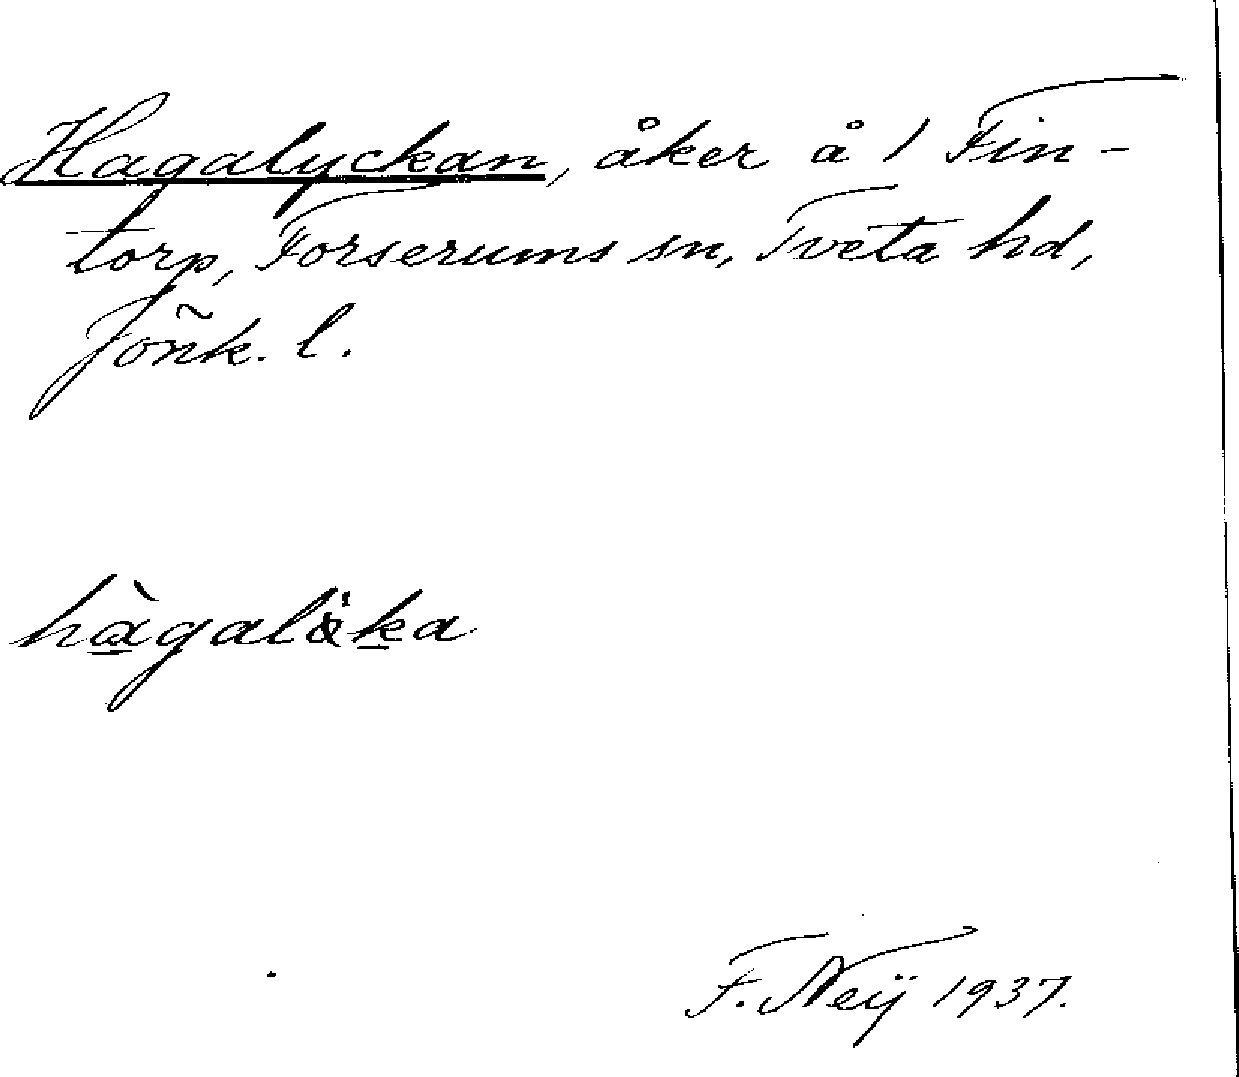 Hagalyckan, åker å 1 Fin-
torp, Forserums sn, Tveta hd,
Jönk. l.
hàgalöka
F. Neij 1937.